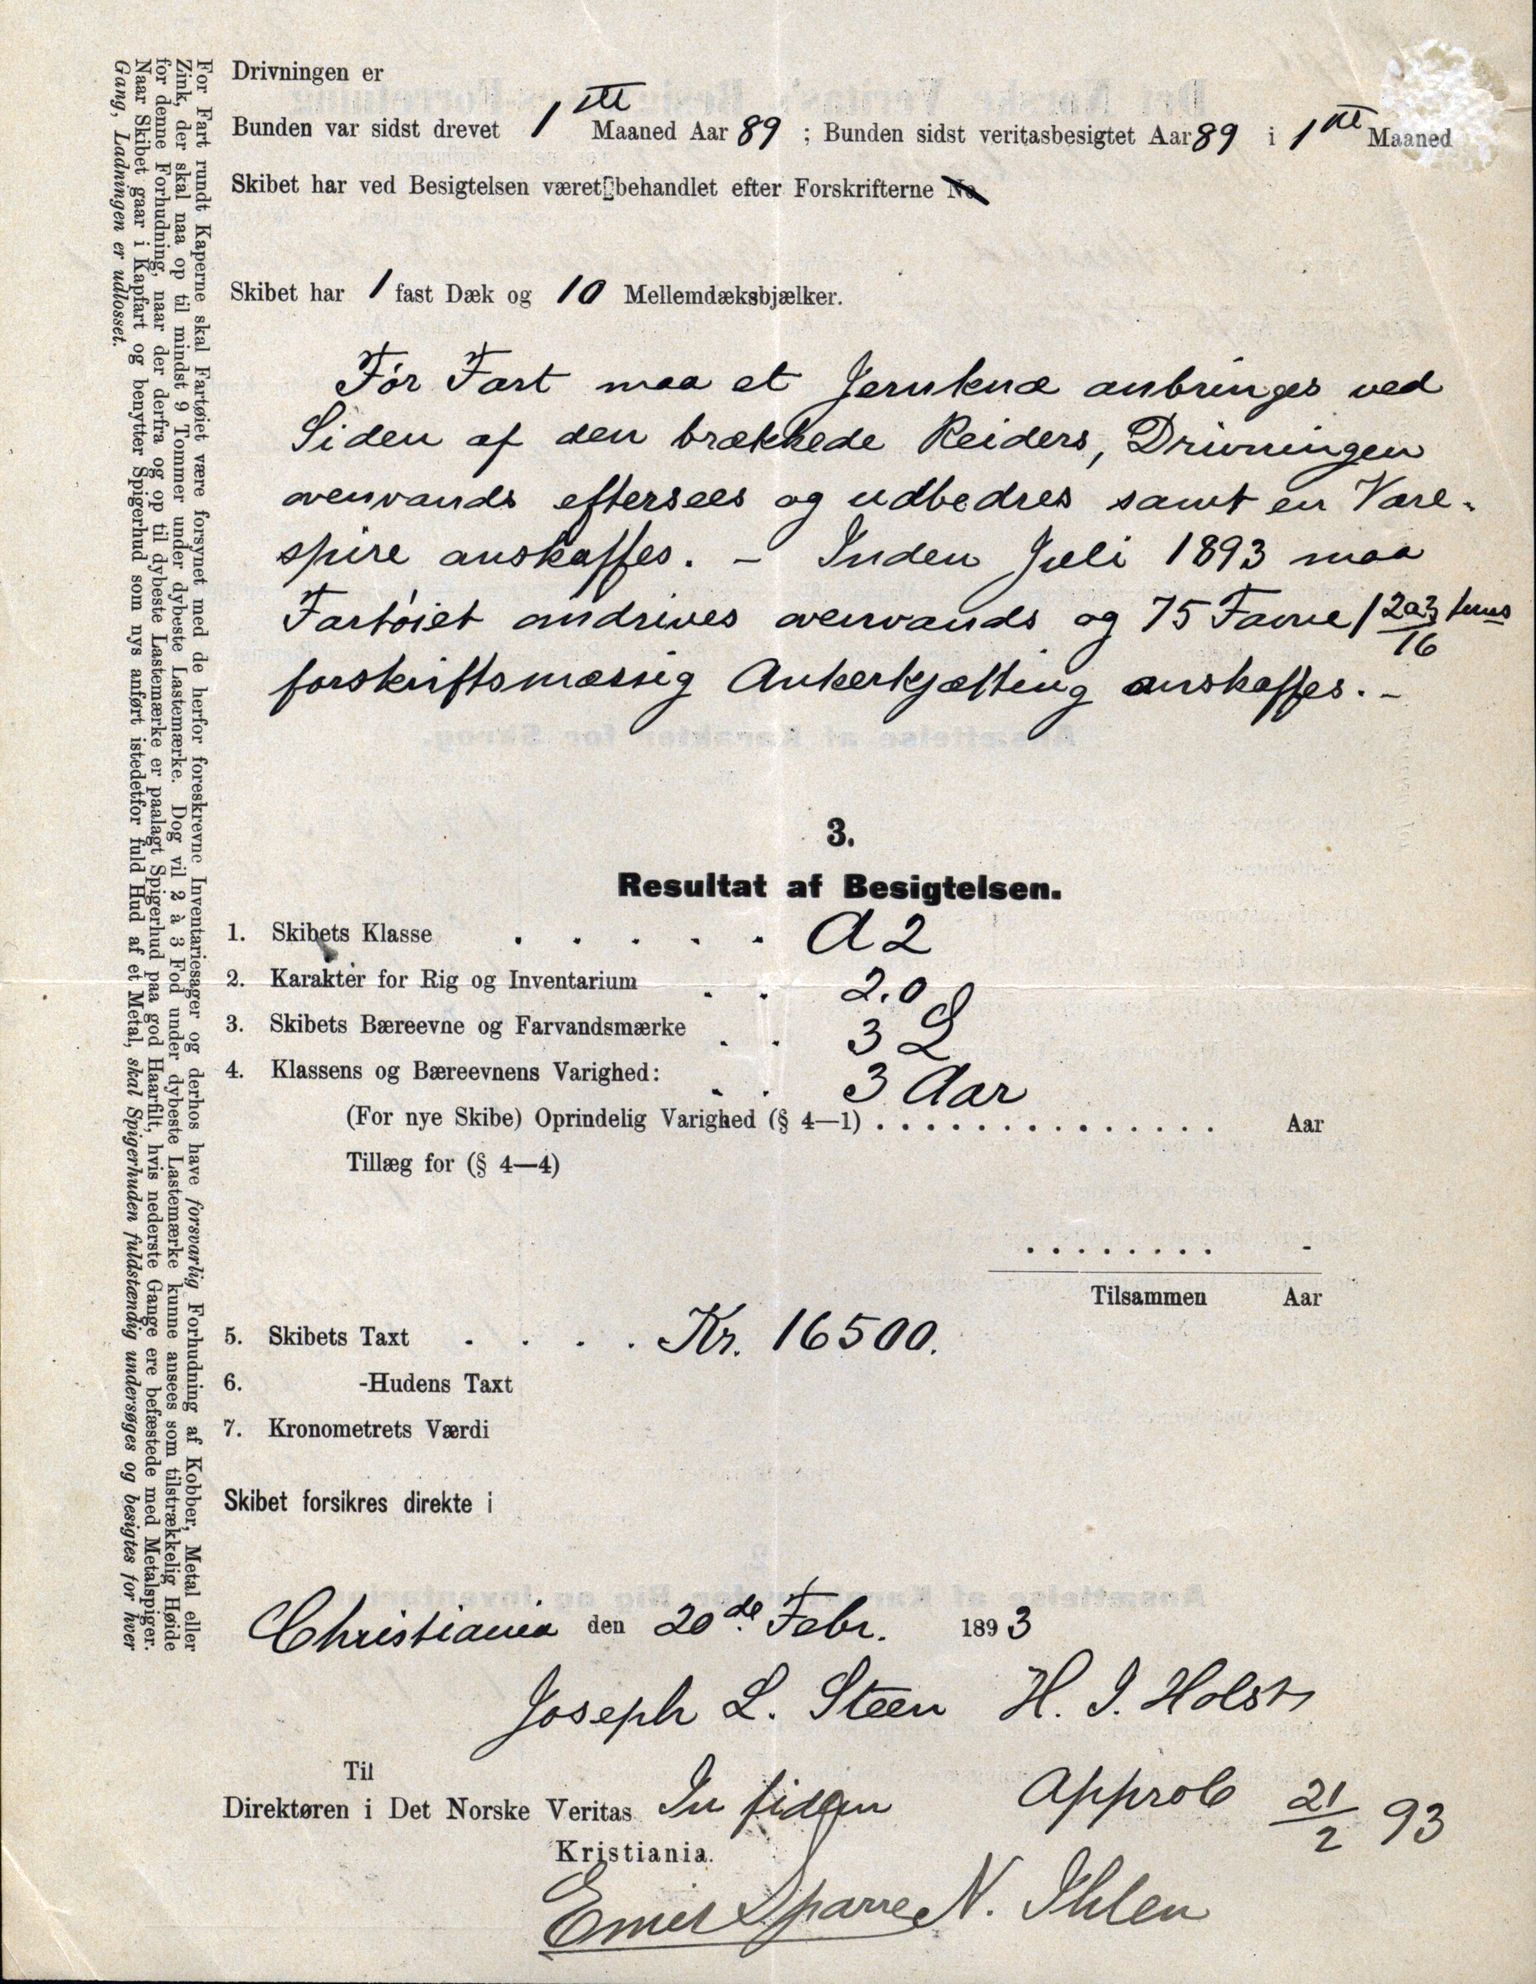 Drivningen er
Bunden var sidst drevet 1ste Maaned Aar 89 ; Bunden sidst veritasbesigtet Aar 89 i 1ste Maaned
Skibet har ved Besigtelsen været behandlet efter Forskrifterne No
Skibet har 1 fast Dæk og 10 Mellemdæksbjælker.
Før Fart maa et Jernknæ anbringes ved
Siden af den brækkede Reiders, Drivningen
ovenvands eftersees og udbedres samt en Vare-
spire anskaffes. – Inden Juli 1893 maa
Fartøiet omdrives ovenvands og 75 Favne 1 2 a 3/16 tums
forskriftsmæssig Ankerkjætting anskaffes. –
3.
Resultat af Besigtelsen.
1. Skibets Klasse . . . . . A 2
2. Karakter for Rig og Inventarium . . 2.0
3. Skibets Bæreevne og Farvandsmærke . . 3 L
4. Klassens og Bæreevnens Varighed: . . 3 Aar
(For nye Skibe) Oprindelig Varighed (§ 4—1) . . . . . . . . . . . . . . . Aar
Tillæg for (§ 4—4)
. . . . . . . . -
Tilsammen Aar
5. Skibets Taxt . . . . Kr. 16500.
6. -Hudens Taxt
7. Kronometrets Værdi
Skibet forsikres direkte i
Christiania den 20de Febr. 1893
Joseph L. Steen H. J. Holst
Til
Direktøren i Det Norske Veritas In fidem Approb 21/2 93
Kristiania.
Emil Sparre N. Ihlen
For Fart rundt Kaperne skal Fartøiet være forsynet med de herfor foreskrevne Inventariesager og derhos have forsvarlig Forhudning af Kobber, Metal eller
Zink, der skal naa op til mindst 9 Tommer under dybeste Lastemærke. Dog vil 2 à 3 Fod under dybeste Lastemærke kunne ansees som tilstrækkelig Høide
for denne Forhudning, naar der derfra og op til dybeste Lastemærke er paalagt Spigerhud paa god Haarfilt, hvis nederste Gange ere befæstede med Metalspiger.
Naar Skibet gaar i Kapfart og benytter Spigerhud som nys anført istedetfor fuld Hud af et Metal, skal Spigerhuden fuldstændig undersøges og besigtes for hver
Gang, Ladningen er udlosset.